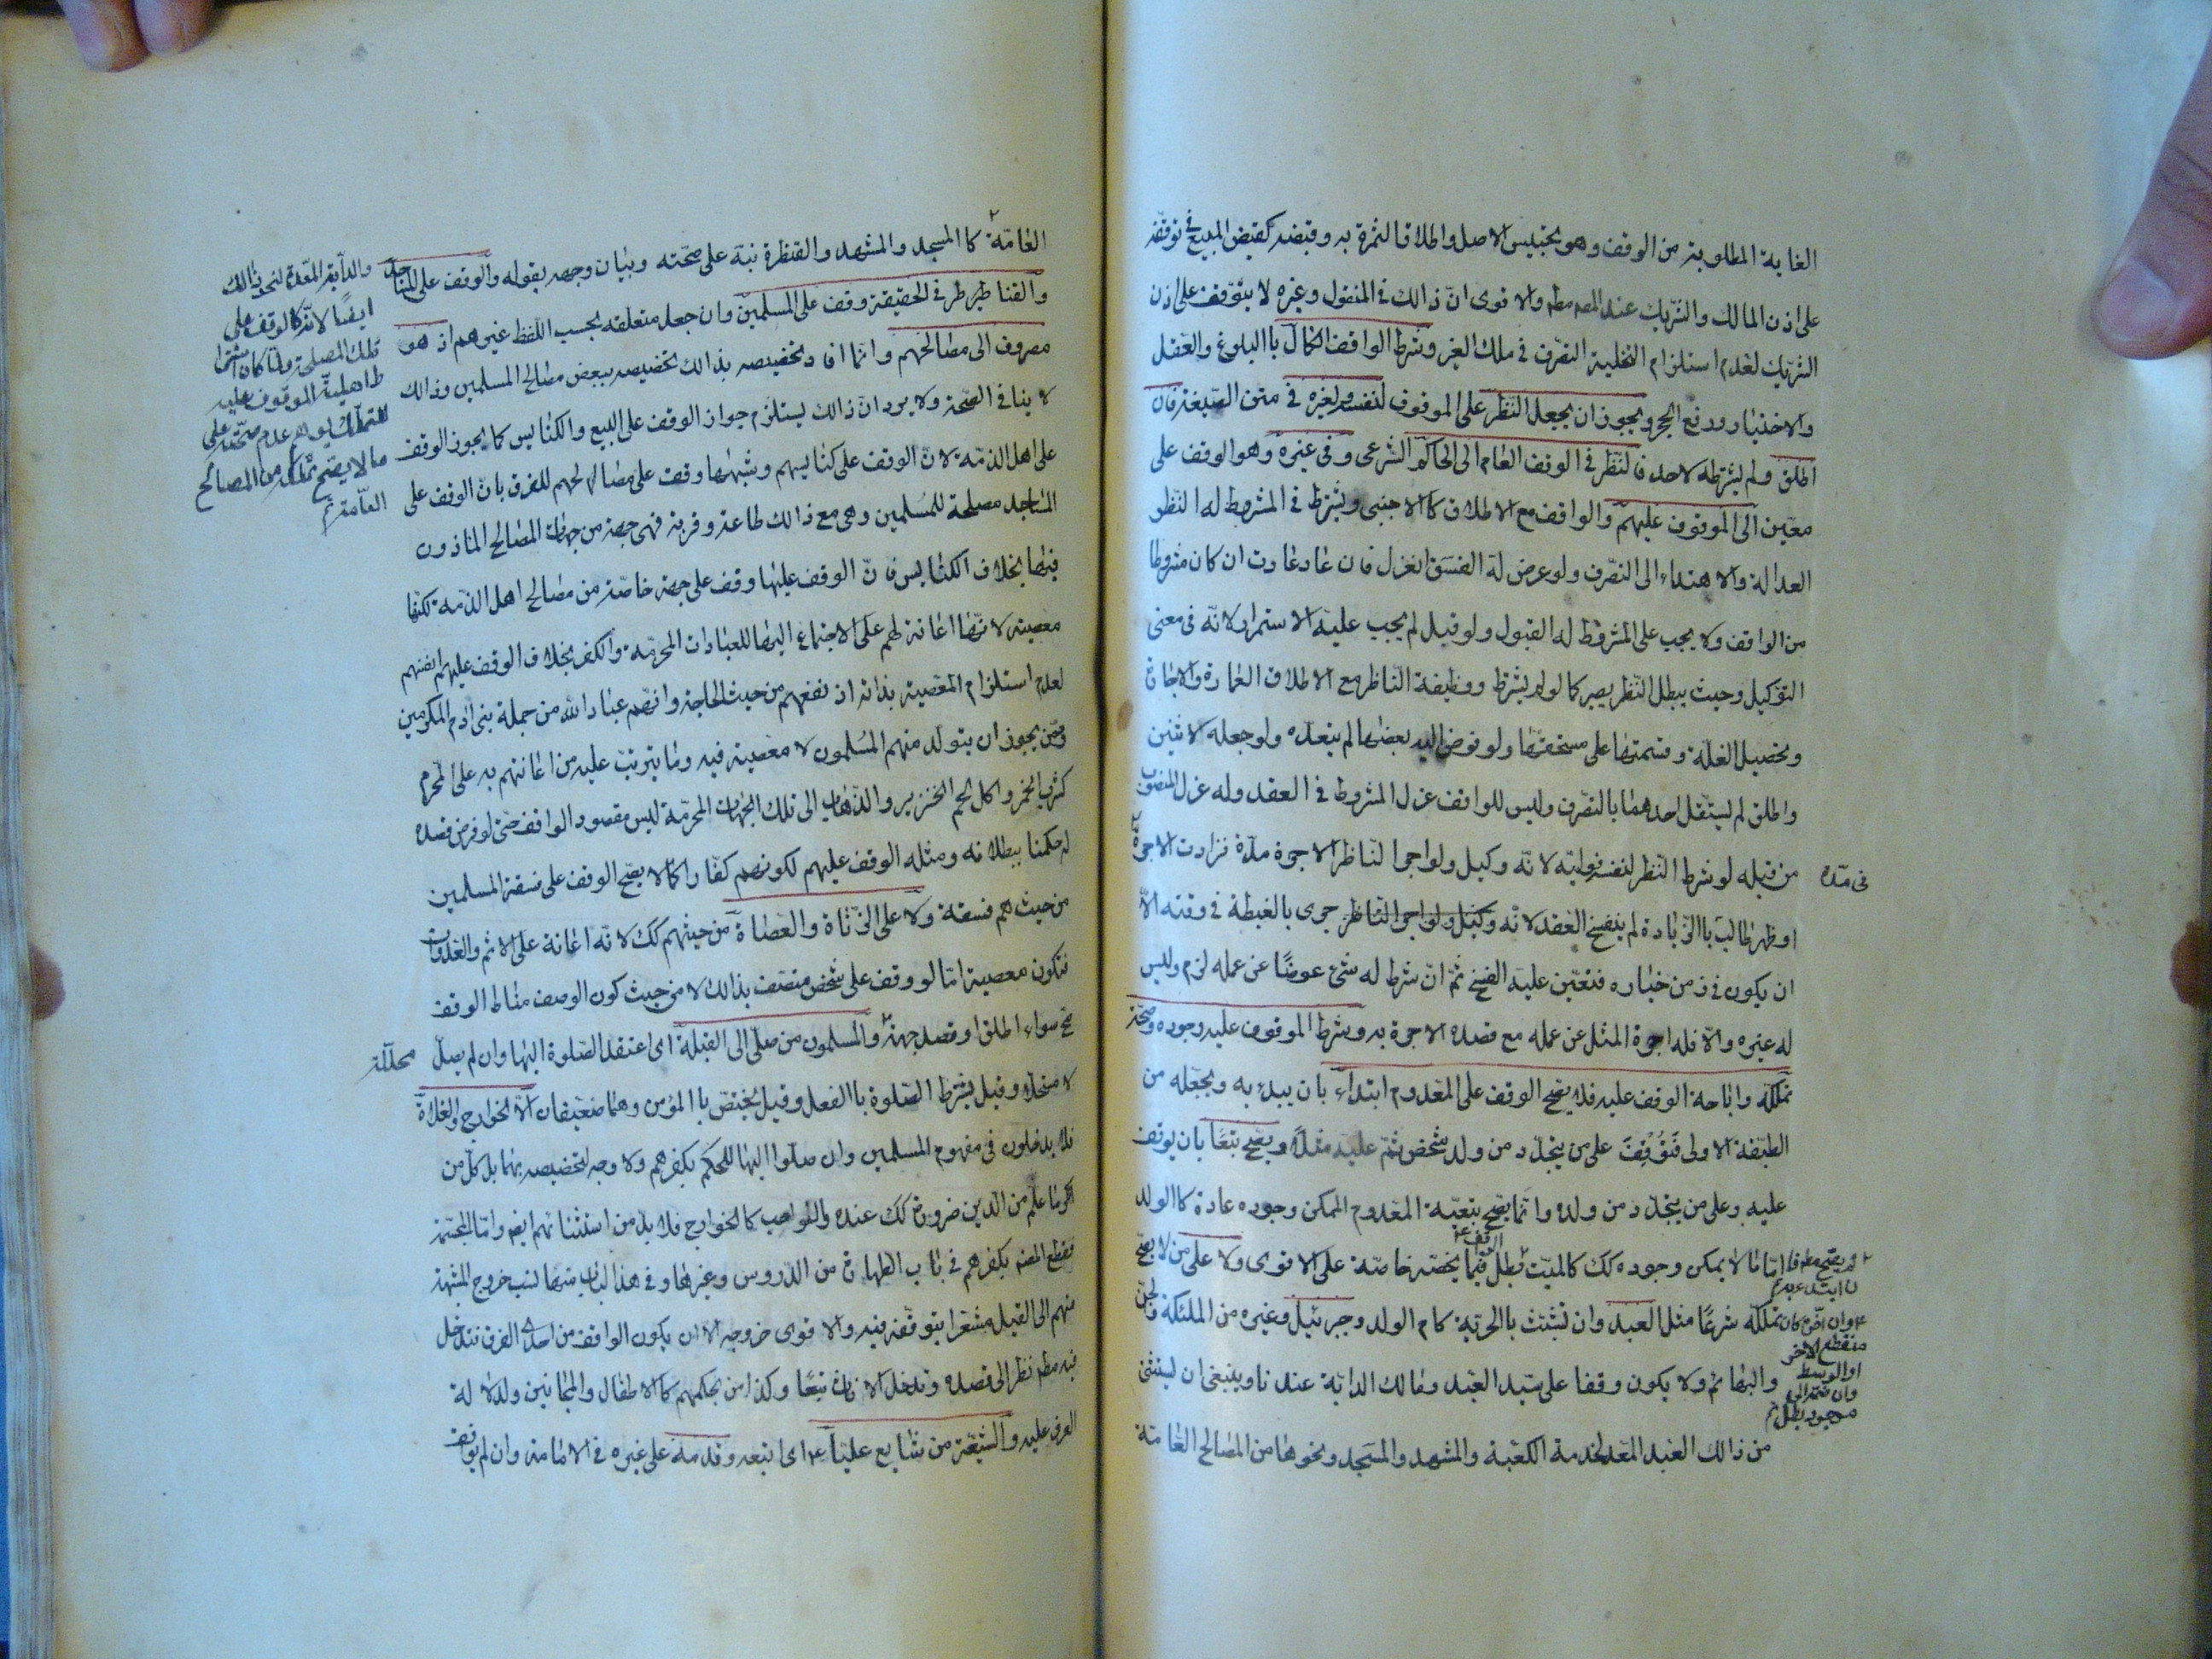 الغاية المطلوبة من الوقف وهو تحبيس الاصل واطلاق الثمرة به وقبضه كقبض المبيع في توقفه
على اذن المالك والشريك عند المصه مطم والاقوى انّ ذالك في المنقول وغيره لا يتوقف على اذن
الشريك لعدم استلزام التخلية التصرف في ملك الغير وشرط الواقف الكمال باالبلوغ والعقل
والاختيار ورفع الحجر ويجوز ان يجعل النظر على الموقوف لنفسه ولغيره في متن الصيغة فان
اطلق ولم يشترطه لاحد فالنظر في الوقف العام الى الحاكم الشرعى وفى غيره وهو الوقف على
معين الى الموقوف عليهم والواقف مع الاطلاق كالاجنبى ويشترط في المشروط له النظر
العدالة والاهتداء الى التصرف ولو عرض له الفسق انعزل فان عاد عادت ان كان مشروطا
من الواقف ولا يجب على المشروط له القبول ولو قبل لم يجب عليه الاستمرار لانّه فى معنى
التوكيل وحيث يبطل النظر يصير كما لو لم يشترط ووظيفة الناظر مع الاطلاق العمارة والاجارة
وتحصيل الغلة وقسمتها على مستحقها ولو فوض اليه بعضها لم يتعدّه ولو جعله لاثنين
واطلق لم يستقل احدهما بالتصرف وليس للواقف عزل المشروط في العقد وله عزل المنصوب
من قبله لو شرط النظر لنفسه فولّيه لانّه وكيل ولو اجرا لناظر الاجرة مدّة فزادت الاجرة
فى مدّه
او ظهر طالب باالزيادة لم ينفسخ العقد لانّه وكيل ولو اجرا الناظر جرى بالغبطة في وقته الّا
ان يكون في زمن خياره فتعين عليه الفسخ ثمّ انّ شرط له شئ عوضًا عن عمله لزم وليس
له غيره والّا فله اجرة المثل عن عمله مع قصده الاجرة به وشرط الموقوف عليه وجوده وصحّة
تملكه واباحة الوقف عليه فلا يصح الوقف على المعدوم ابتداء بان يبدء به ويجعله من
الطبقة الاولى فَوُقِفَ على من يتجدّد من ولد شخص ثمّ عليه مثلًا ويصح تبعًا بان يوقف
عليه وعلى من يتجدّد من ولده وانما يصح بتبعيّة المعدوم الممكن وجوده عادة كالولد
امّا ما لا يمكن وجوده كك كالميّت فبطل فيما يخصّه خاصّة على الاقوى ولا على من لا يصحّ
الوقف
تملكه شرعًا مثل العبد وان تشبّث باالحرية كام الولد وجبرئيل وغيره من الملئكة والجن
والبهائم ولا يكون وقفا على سيد العبد ومالك الدابّة عندنا وينبغى ان يستثنى
من ذالك العبد المعد لخدمة الكعبة والمشهد والمسجد ونحوها من المصالح العامّة
ان ابتدء به
وان اخّر كان
منقطع الاخر
او الوسط
وان ضمّه الى
موجود بطل
العامّة كاالمسجد والمشهد والقنظرة نبّه على صحّته وبيان وجهه بقوله والوقف على المساجد
والقناطير في الحقيقة وقف على المسلمين وان جعل متعلقه بحسب اللّفظ غيرهم اذ هو
مصروف الى مصالحهم وانّما افاد تخصيصه بذالك تخصيصه ببعض مصالح المسلمين وذالك
لا ينافى الصّحة ولا يرد انّ ذالك يستلزم جواز الوقف على البيع والكنايس كما يجوز الوقف
على اهل الذمّة لانّ الوقف على كنايسهم وشبهها وقف على مصالحهم للفرق بانّ الوقف على
المساجد مصلحة للمسلمين وهى مع ذالك طاعة وقربة فهى جهة من جهات المصالح الماذون
فيها بخلاف الكنايس فانّ الوقف عليها وقف على جهة خاصّة من مصالح اهل الذمة لكنها
معصية لانّها اعانة لهم على الاجتماع اليها للعبادات المحرّمة والكفر بخلاف الوقف عليهم انفسهم
لعدم استلزام المعصية بذاته اذ نفعهم من حيث الحاجة وانّهم عباد الله من جملة بنى آدم المكرمين
ومن يجوز ان يتولد منهم المسلمون لا معصية فيه وما يترتب عليه من اعانتهم به على المحرم
كشرب الخمر واكل لحم الخنزير والذهاب الى تلك الجهات المحرّمة ليس مقصود الواقف حتى لو فرض قصده
له حكمنا ببطلانه ومثله الوقف عليهم لكونهم كفّارا كما لا يصح الوقف على فسقة المسلمين
من حيث هم فسقة ولا على الزناة والعصاة من حيث هم كك لانّه اعانة على الاثم والعدوان
فتكون معصية امّا لو وقف على شخص متصف بذالك لا من حيث كون الوصف مناط الوقف
صح سواء اطلق او قصد جهة والمسلمون من صلّى الى القبلة اى اعتقد الصّلوة اليها وان لم يصلّ
محلّلة
لا مستحلا وقيل يشترط الصّلوة باالفعل وقيل يختصّ باالمؤمن وهما ضعيفان الّا الخوارج والغلاة
فلا يدخلون فى مفهوم المسلمين وان صلّوا اليها للحكم بكفرهم ولا وجه لتخصيصه بهما بل كلّ من
انكر ما علم من الدين ضرورة كك عنده والنواصب كالخوارج فلا بدّ من استثنائهم ايضم وامّا المجسّمة
فقطع المصنّه بكفرهم في باب الطهارة من الدروس وغيرها وفي هذا الباب منها نسب خروج المشبهة
منهم الى القيل مشعرا بتوقّفه فيه والاقوى خروجه الّا ان يكون الواقف من احدى الفرق فتدخل
فيه مطم نظر الى قصده وتدخل الاناث تبعًا وكذا من بحكمهم كالاطفال والمجانين ولدلالة
العرف عليه والشيعة من شايع عليًا ع اى اتبعه وقدمه على غيره في الامامة وان لم يوافق
والدآبة المعدّة لنحو ذالك
ايضًا لانّه كالوقف على
تلك المصلحة ولمّا كان اشترا
ط اهلية الموقوف عليه
للتملك يوهم عدم صحته على
ما لا يصح تملكه من المصالح
العامّة